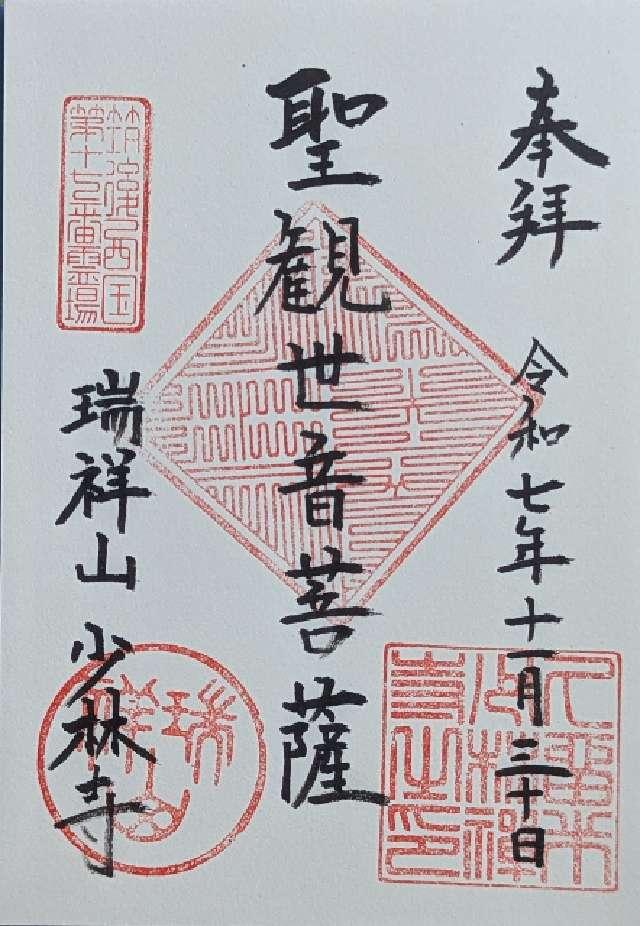 奉拝
令和七年十一月三十日
聖観世音菩薩
筑後西国
第十七番霊場
瑞祥山
少林寺
瑞祥山